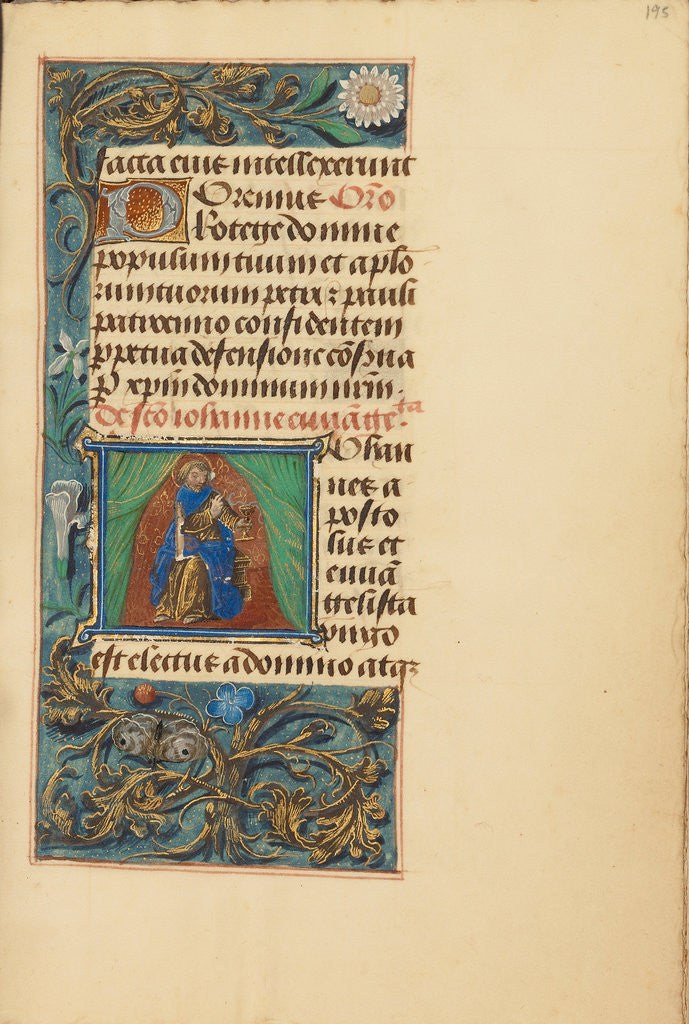 195
facta eius intellexerunt
Oremus Oro
Protege domine
populum tuum et aplo
rum tuorum petri ⁊ pauli
patrocinio confidentem
ppetua defensione cõserua
P xpm dominum nrm.
De scõ iohanne euuãge.ta
Iohan
nes a
posto
lus et
euuã
gelista
uirgo
est electus a domino atqꝫ